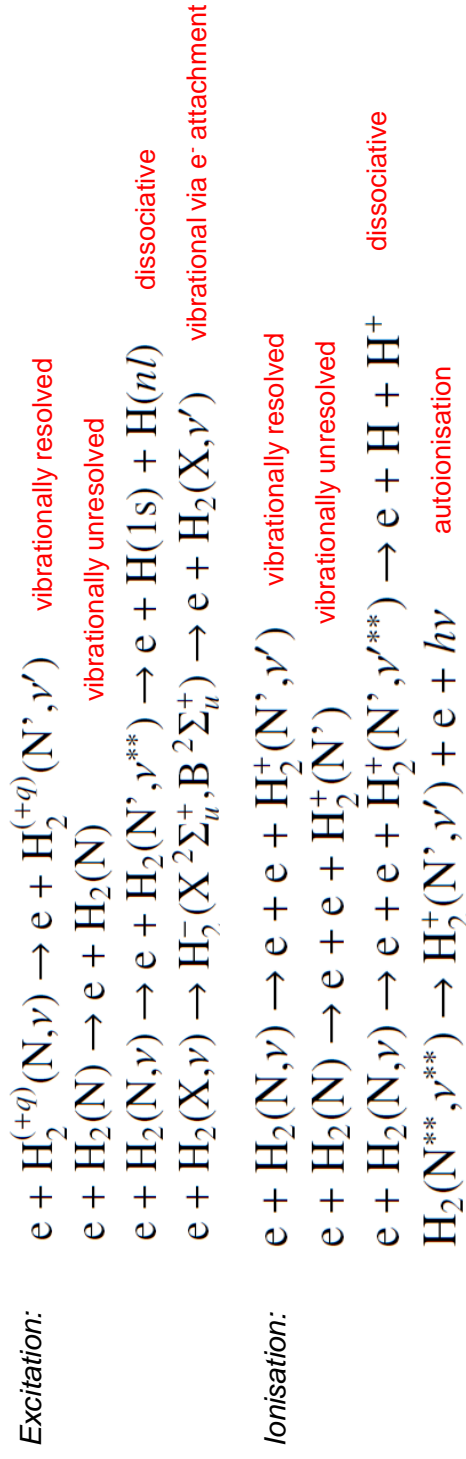 Excitation:
e + H₂⁽⁺q⁾(N,ν) → e + H₂⁽⁺q⁾(N',ν′) vibrationally resolved
e + H₂(N) → e + H₂(N) vibrationally unresolved
e + H₂(N,ν) → e + H₂(N',ν**) → e + H(1s) + H(nl) dissociative
e + H₂(X,ν) → H₂⁻(X ²Σᵤ⁺, B ²Σᵤ⁺) → e + H₂(X,ν′) vibrational via e⁻ attachment
Ionisation:
e + H₂(N,ν) → e + e + H₂⁺(N',ν′) vibrationally resolved
e + H₂(N) → e + e + H₂⁺(N') vibrationally unresolved
e + H₂(N,ν) → e + e + H₂⁺(N',ν′**) → e + H + H⁺ dissociative
H₂(N**,ν**) → H₂⁺(N',ν′) + e + hν autoionisation